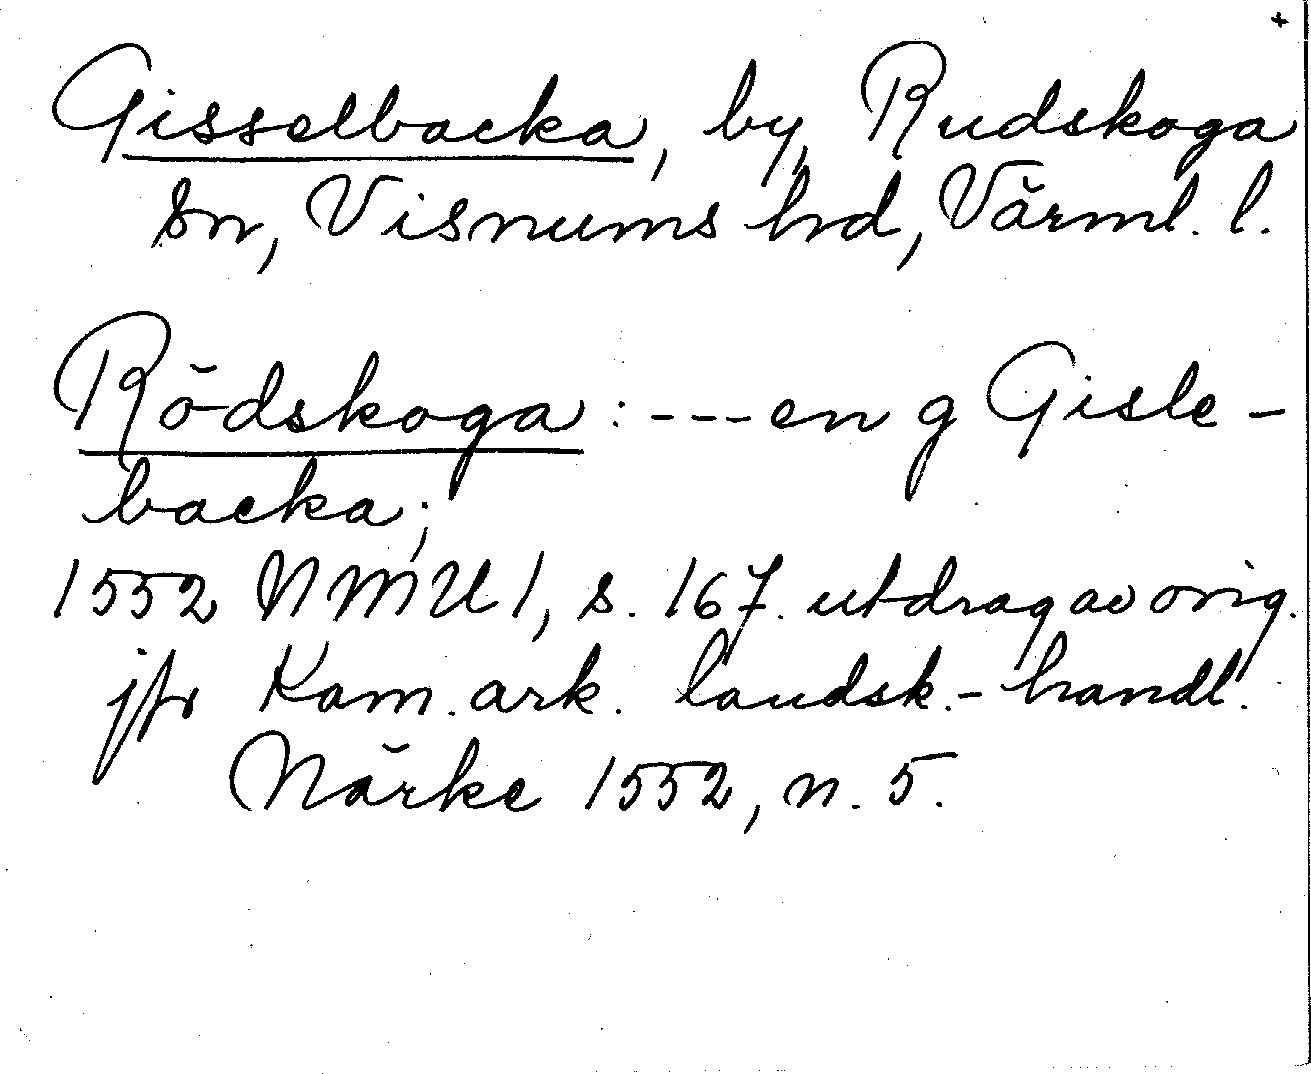 +
Gisselbacka, by, Rudskoga
sn, Visnums hd, Värml. l.
Rödskoga : --- en g Gisle-
backa;
1552 NMU 1, s. 167. utdrag av orig.
jfr Kam. ark. landsk.-handl.
Närke 1552, n. 5.